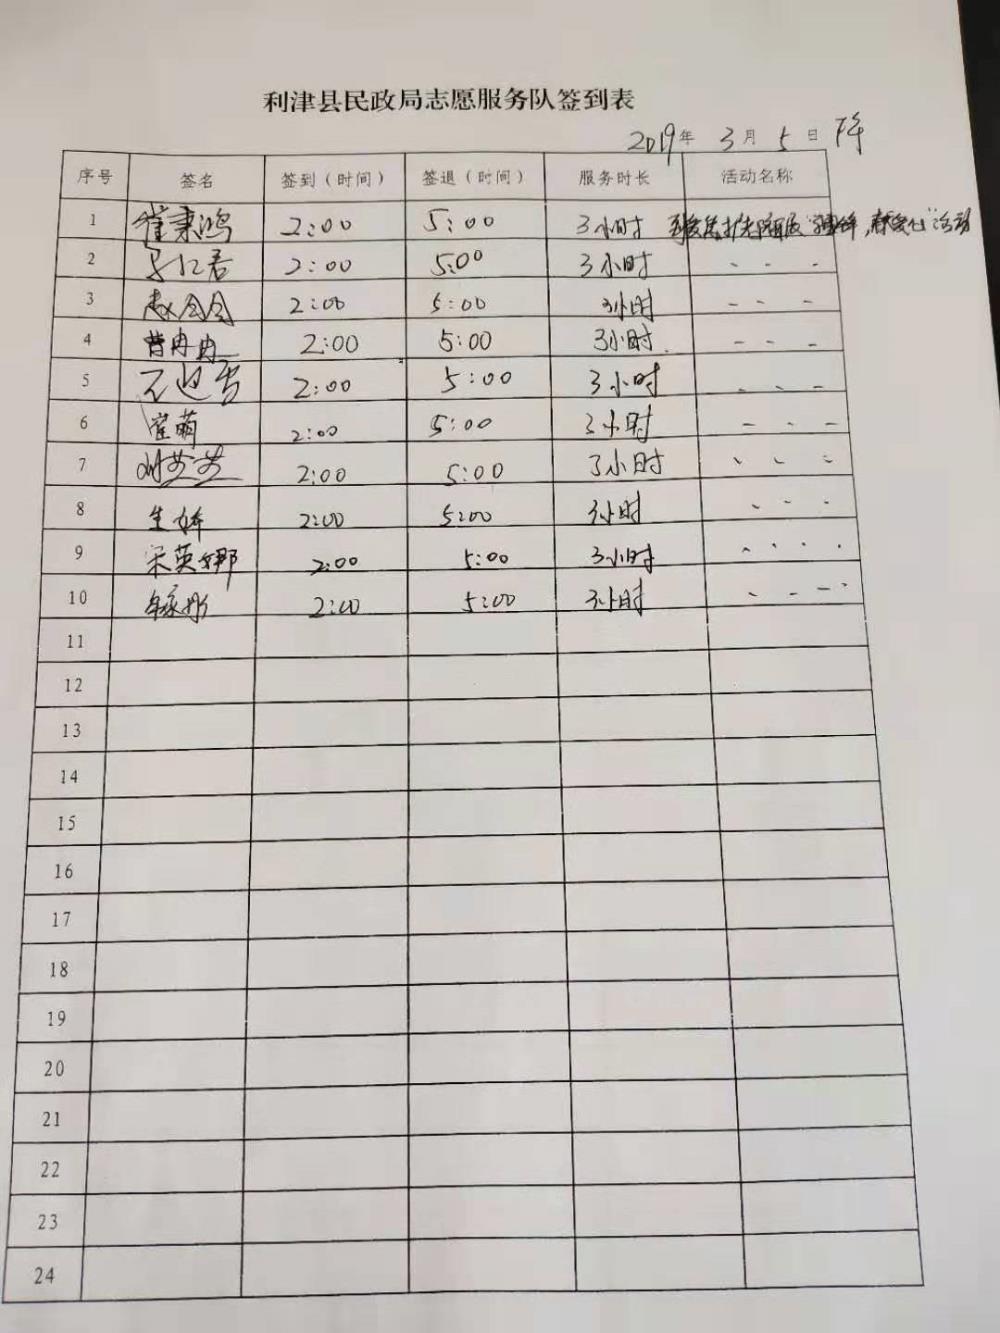 利津县民政局志愿服务队签到表
2019年 3月 5日 下午
序号 签名 签到(时间) 签退(时间) 服务时长 活动名称
1 崔秉鸿 2:00 5:00 3小时 活动
2 2:00 5:00 3小时
3 赵会会 2:00 5:00 3小时
4 曹冉冉 2:00 5:00 3小时
5 2:00 5:00 3小时
6 崔萌 2:00 5:00 3小时
7 2:00 5:00 3小时
8 生婷 2:00 5:00 3小时
9 宋英娜 2:00 5:00 3小时
10 2:00 5:00 3小时
11
12
13
14
15
16
17
18
19
20
21
22
23
24